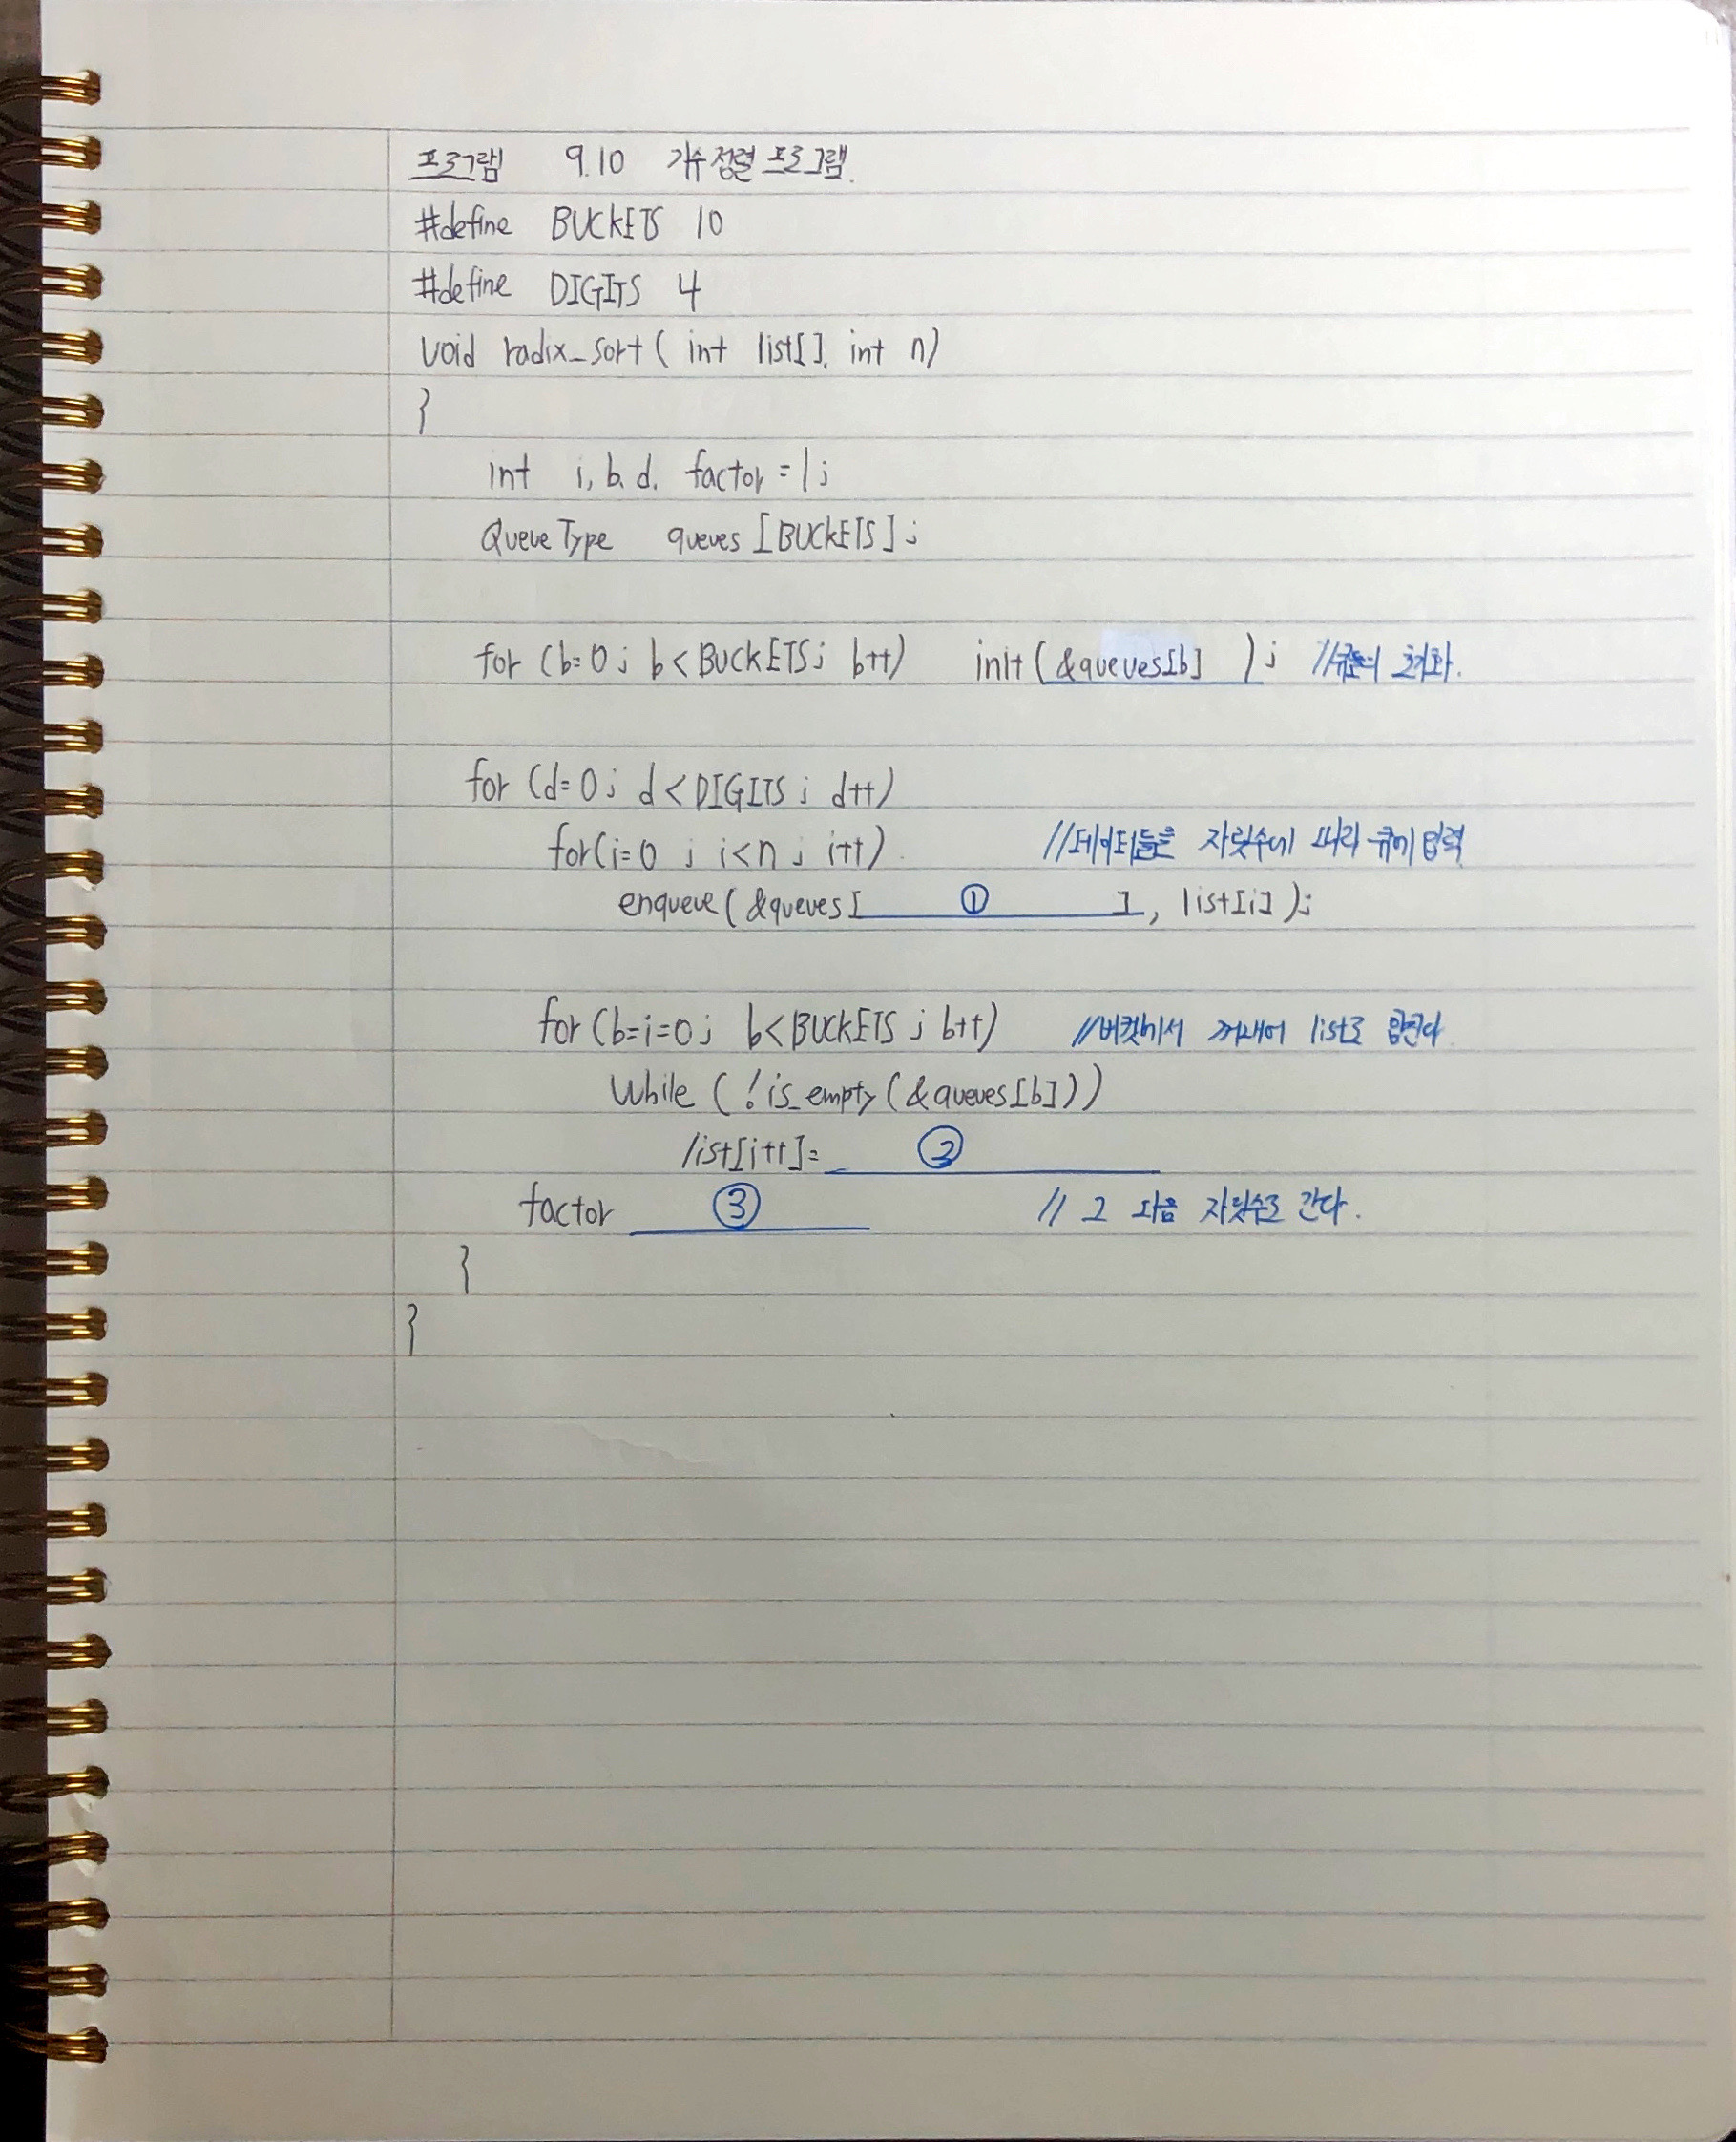 프로그램 9.10 기수정렬 프로그램.
#define BUCKETS 10
#define DIGITS 4
void radix_sort( int list[]. int n)
}
int i, b. d. factor = 1;
QueueType queues [BUCKETS];
for (b=0; b<BUCKETS; b++) init(&queues[b] ); //큐들의 초기화.
for (d=0; d<DIGITS; d++)
for(i=0 ; i<n ; i++) //데이터들을 자릿수에 따라 큐에 입력
enqueue( &queues[ ① ], list[i]);
for(b=i=0; b<BUCKETS ; b++) //버킷에서 꺼내어 list로 합친다
while ( !is_empty(&queues[b]))
list[i++]= ②
factor ③ // 그 다음 자릿수로 간다.
}
}